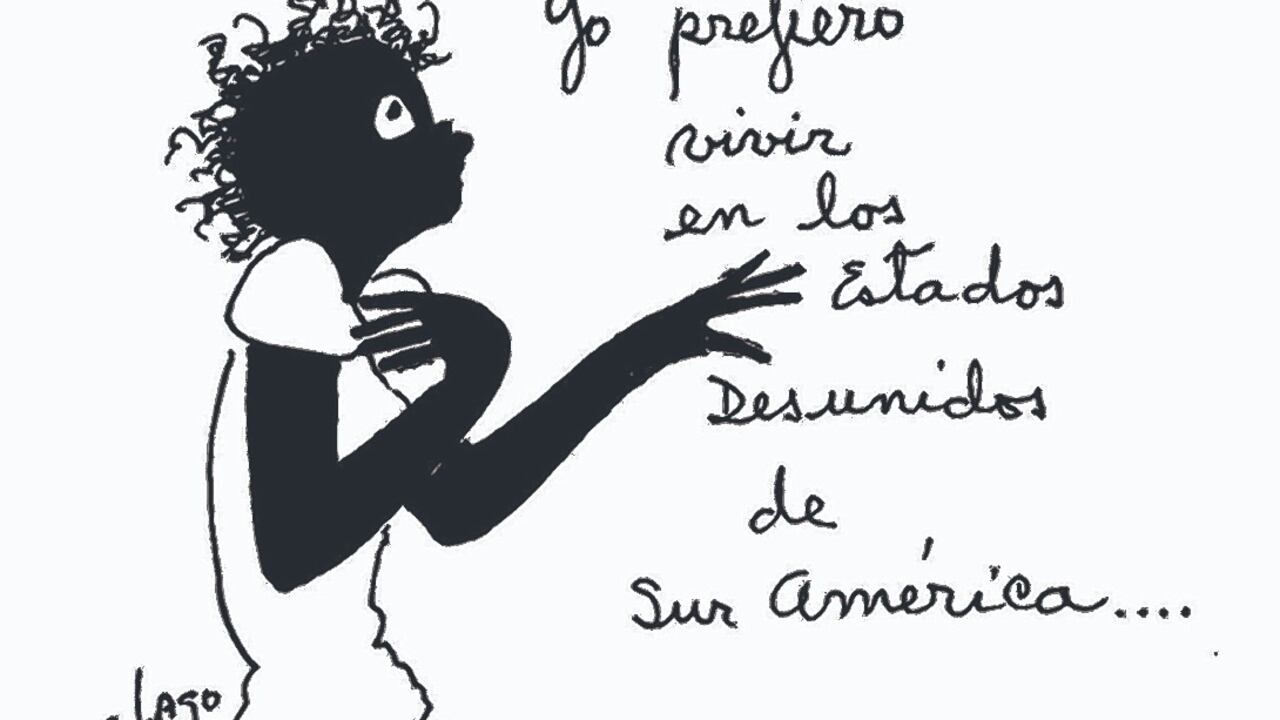 Yo prefiero
vivir
en los
Estados
Desunidos
de
Sur América....
Laso